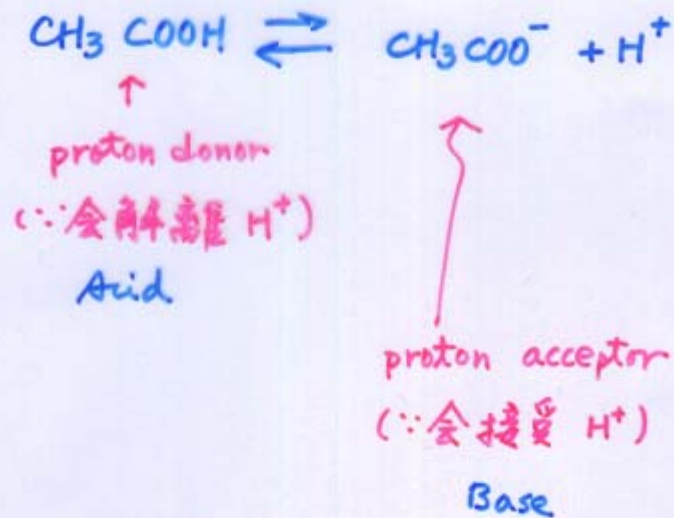 CH₃ COOH ⇌ CH₃COO⁻ + H⁺
proton donor
(∵会解離 H⁺)
Acid
proton acceptor
(∵会接受 H⁺)
Base